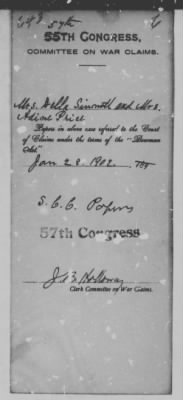 57th
55TH CONGRESS,
COMMITTEE ON WAR CLAIMS.
Mrs. Della Sinnott and Mrs.
Adient Price
Papers in above case referred to the Court
of Claims under the terms of the "Bowman
Act."
Jan 28. 1902.
S. C. C. Papers
57th Congress
J. B. Holloway
Clerk Committee on War Claims.